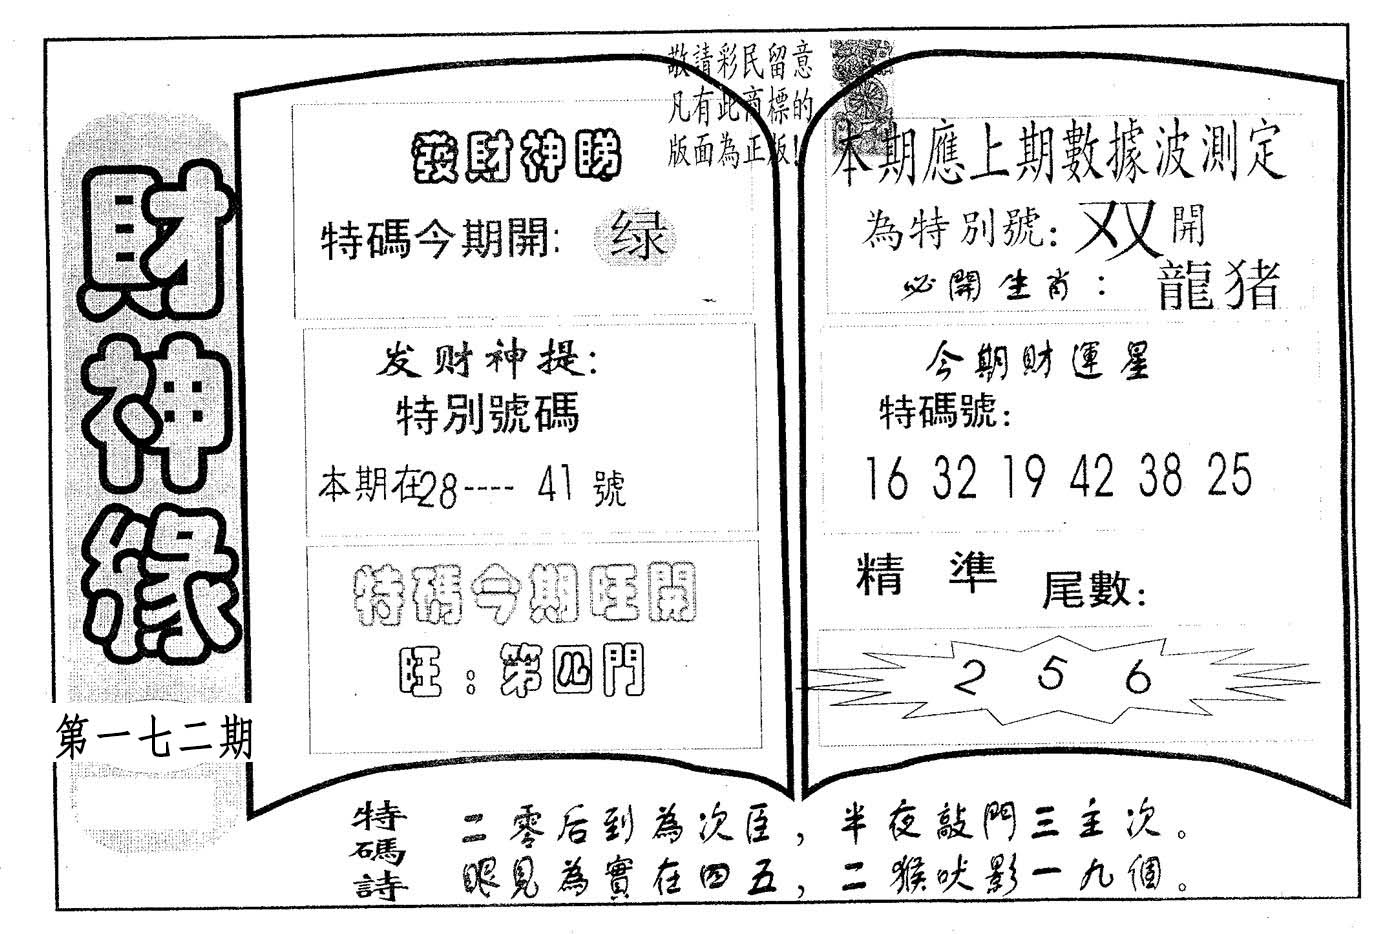 財神緣
第一七二期
敬請彩民留意
凡有此商標的
版面為正版!
發財神睇
特碼今期開: 绿
发财神提:
特別號碼
本期在28---- 41 號
特碼今期旺開
旺: 第四門
本期應上期數據波測定
為特別號: 双 開
必開生肖: 龍猪
今期財運星
特碼號:
16 32 19 42 38 25
精 準 尾數:
2 5 6
特碼詩
二零后到為次臣, 半夜敲門三主次。
眼見為實在四五, 二猴吠影一九個。